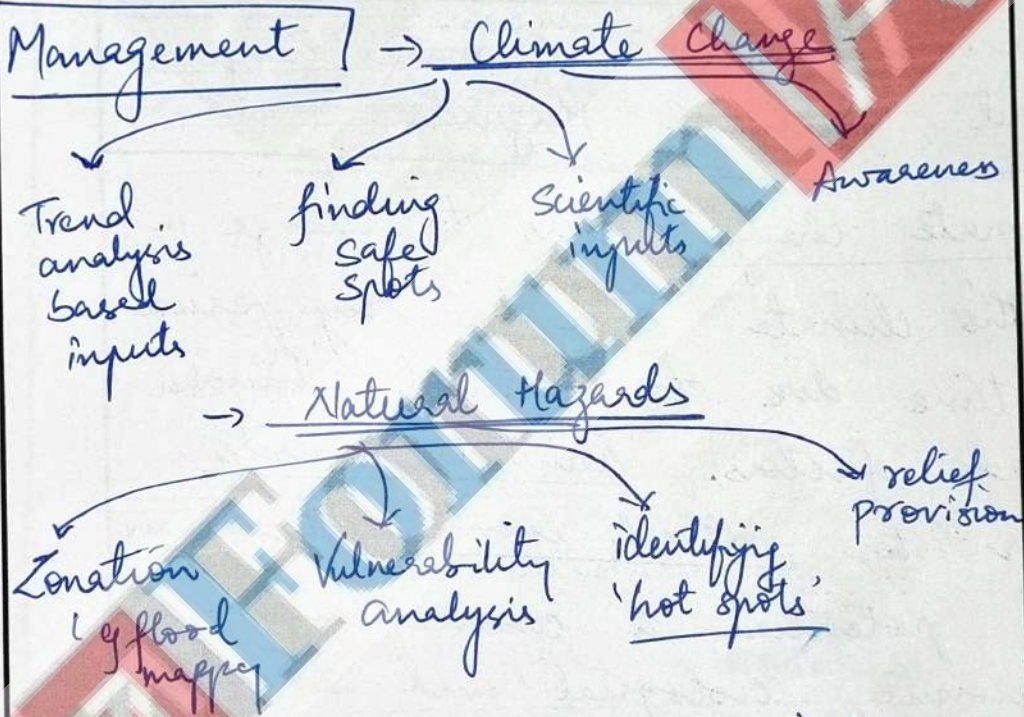 Management → Climate Change
Trend
analysis
based
inputs
finding
safe
spots
Scientific
inputs
Awareness
→ Natural Hazards
Zonation
flood
Vulnerability
analysis
identifying
'hot spots'
relief
provision
Forum IA